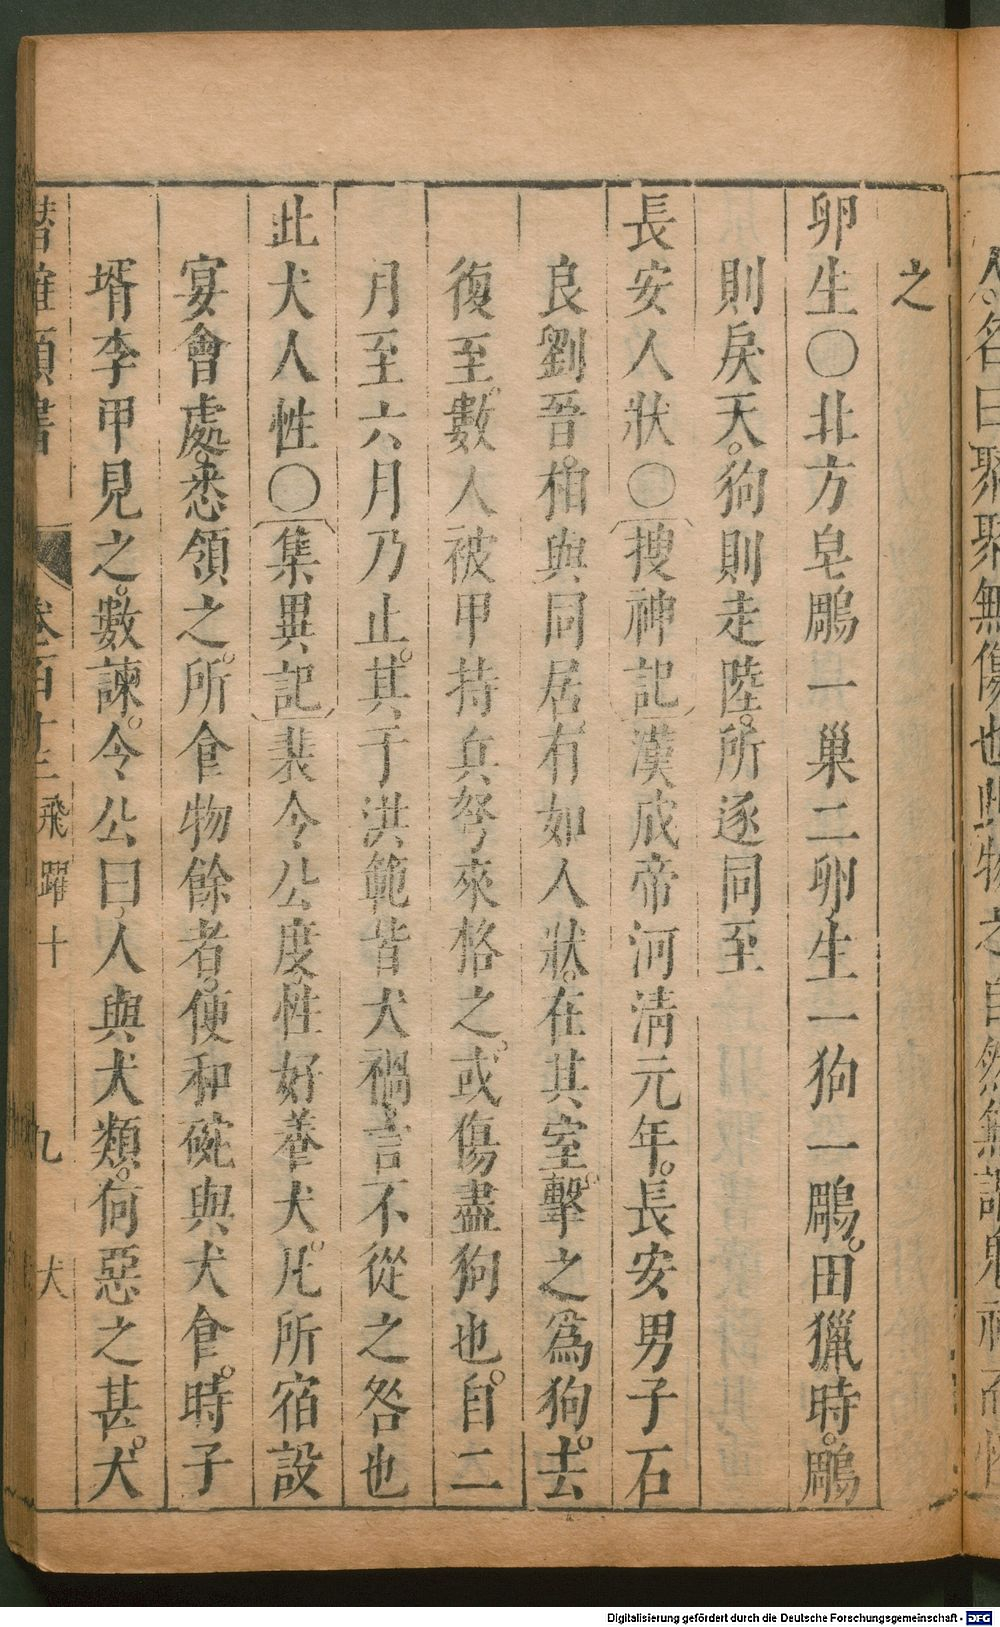 之
卵生〇北方皂鵰一巢二卵生一狗一鵰。田獵時。鵰
則戾天。狗則走陸。所逐同至
長安人狀〇〔搜神記〕漢成帝河清元年。長安男子石
良劉吾。相與同居。有如人狀。在其室。擊之爲狗。去
復至。數人被甲持兵弩來格之。或傷盡狗也。自二
月至六月乃止。其于洪範皆犬禍。言不從之咎也
此犬人性〇〔集異記〕裴令公度。性好養犬。凡所宿設
宴會處。悉領之。所食物餘者。便和碗與犬食。時子
壻李甲見之。數諫。令公曰。人與犬類。何惡之甚。犬
潛確類書 卷百十三 飛躍十 九 犬
Digitalisierung gefördert durch die Deutsche Forschungsgemeinschaft - DFG